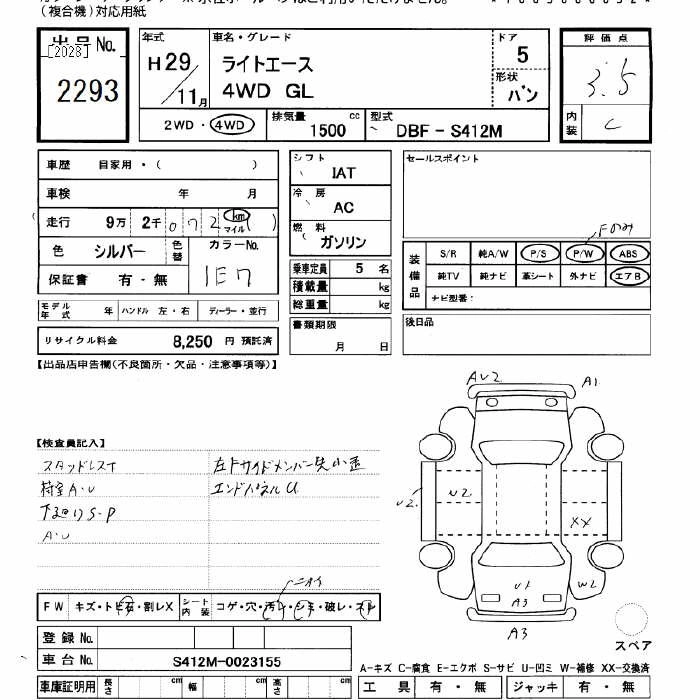 (複合機)対応用紙
出品No.
[2023]
2293
年式
H29/11月
車名・グレード
ライトエース
4WD GL
ドア
5
形状
バン
評価点
3.5
内装
C
2WD・4WD
排気量
1500 cc
型式
DBF-S412M
車歴 自家用・( )
車検 年 月
走行 9万 2千 072 km マイル
色 シルバー 色替
カラーNo.
1E7
保証書 有・無
モデル年式 年 ハンドル 左・右 ディーラー・並行
リサイクル料金 8,250 円 預託済
シフト
IAT
冷房
AC
燃料
ガソリン
乗車定員 5 名
積載量 kg
総重量 kg
書類期限
月 日
セールスポイント
Fのみ
装備品
S/R 純A/W P/S P/W ABS
純TV 純ナビ 革シート 外ナビ エアB
ナビ型番:
後日品
【出品店申告欄(不良箇所・欠品・注意事項等)】
【検査員記入】
スタッドレス
荷室A・U
下回りS・P
A・U
左Fサイドメンバー
エンドパネルU
AU2
A1
U2
U2
XX
U1
A3
W2
A3
スペア
ニオイ
FW キズ・トビ石・割レX
シート内装 コゲ・穴・汚レ・シミ・破レ・スレ
登録No.
車台No. S412M-0023155
車庫証明用 長さ cm 幅 cm 高さ cm
A-キズ C-腐食 E-エクボ S-サビ U-凹ミ W-補修 XX-交換済
工具 有・無 ジャッキ 有・無